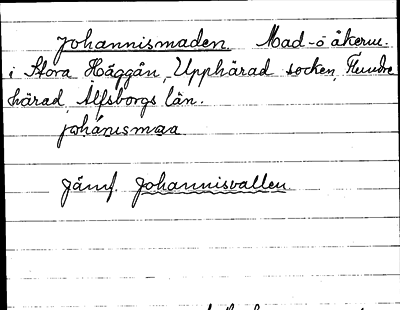 Johannismaden. Mad- o åkerm.
i Stora Häggån, Upphärad socken, Flundre
härad, Älfsborgs län.
johánismaa
Jämf. Johannisvallen